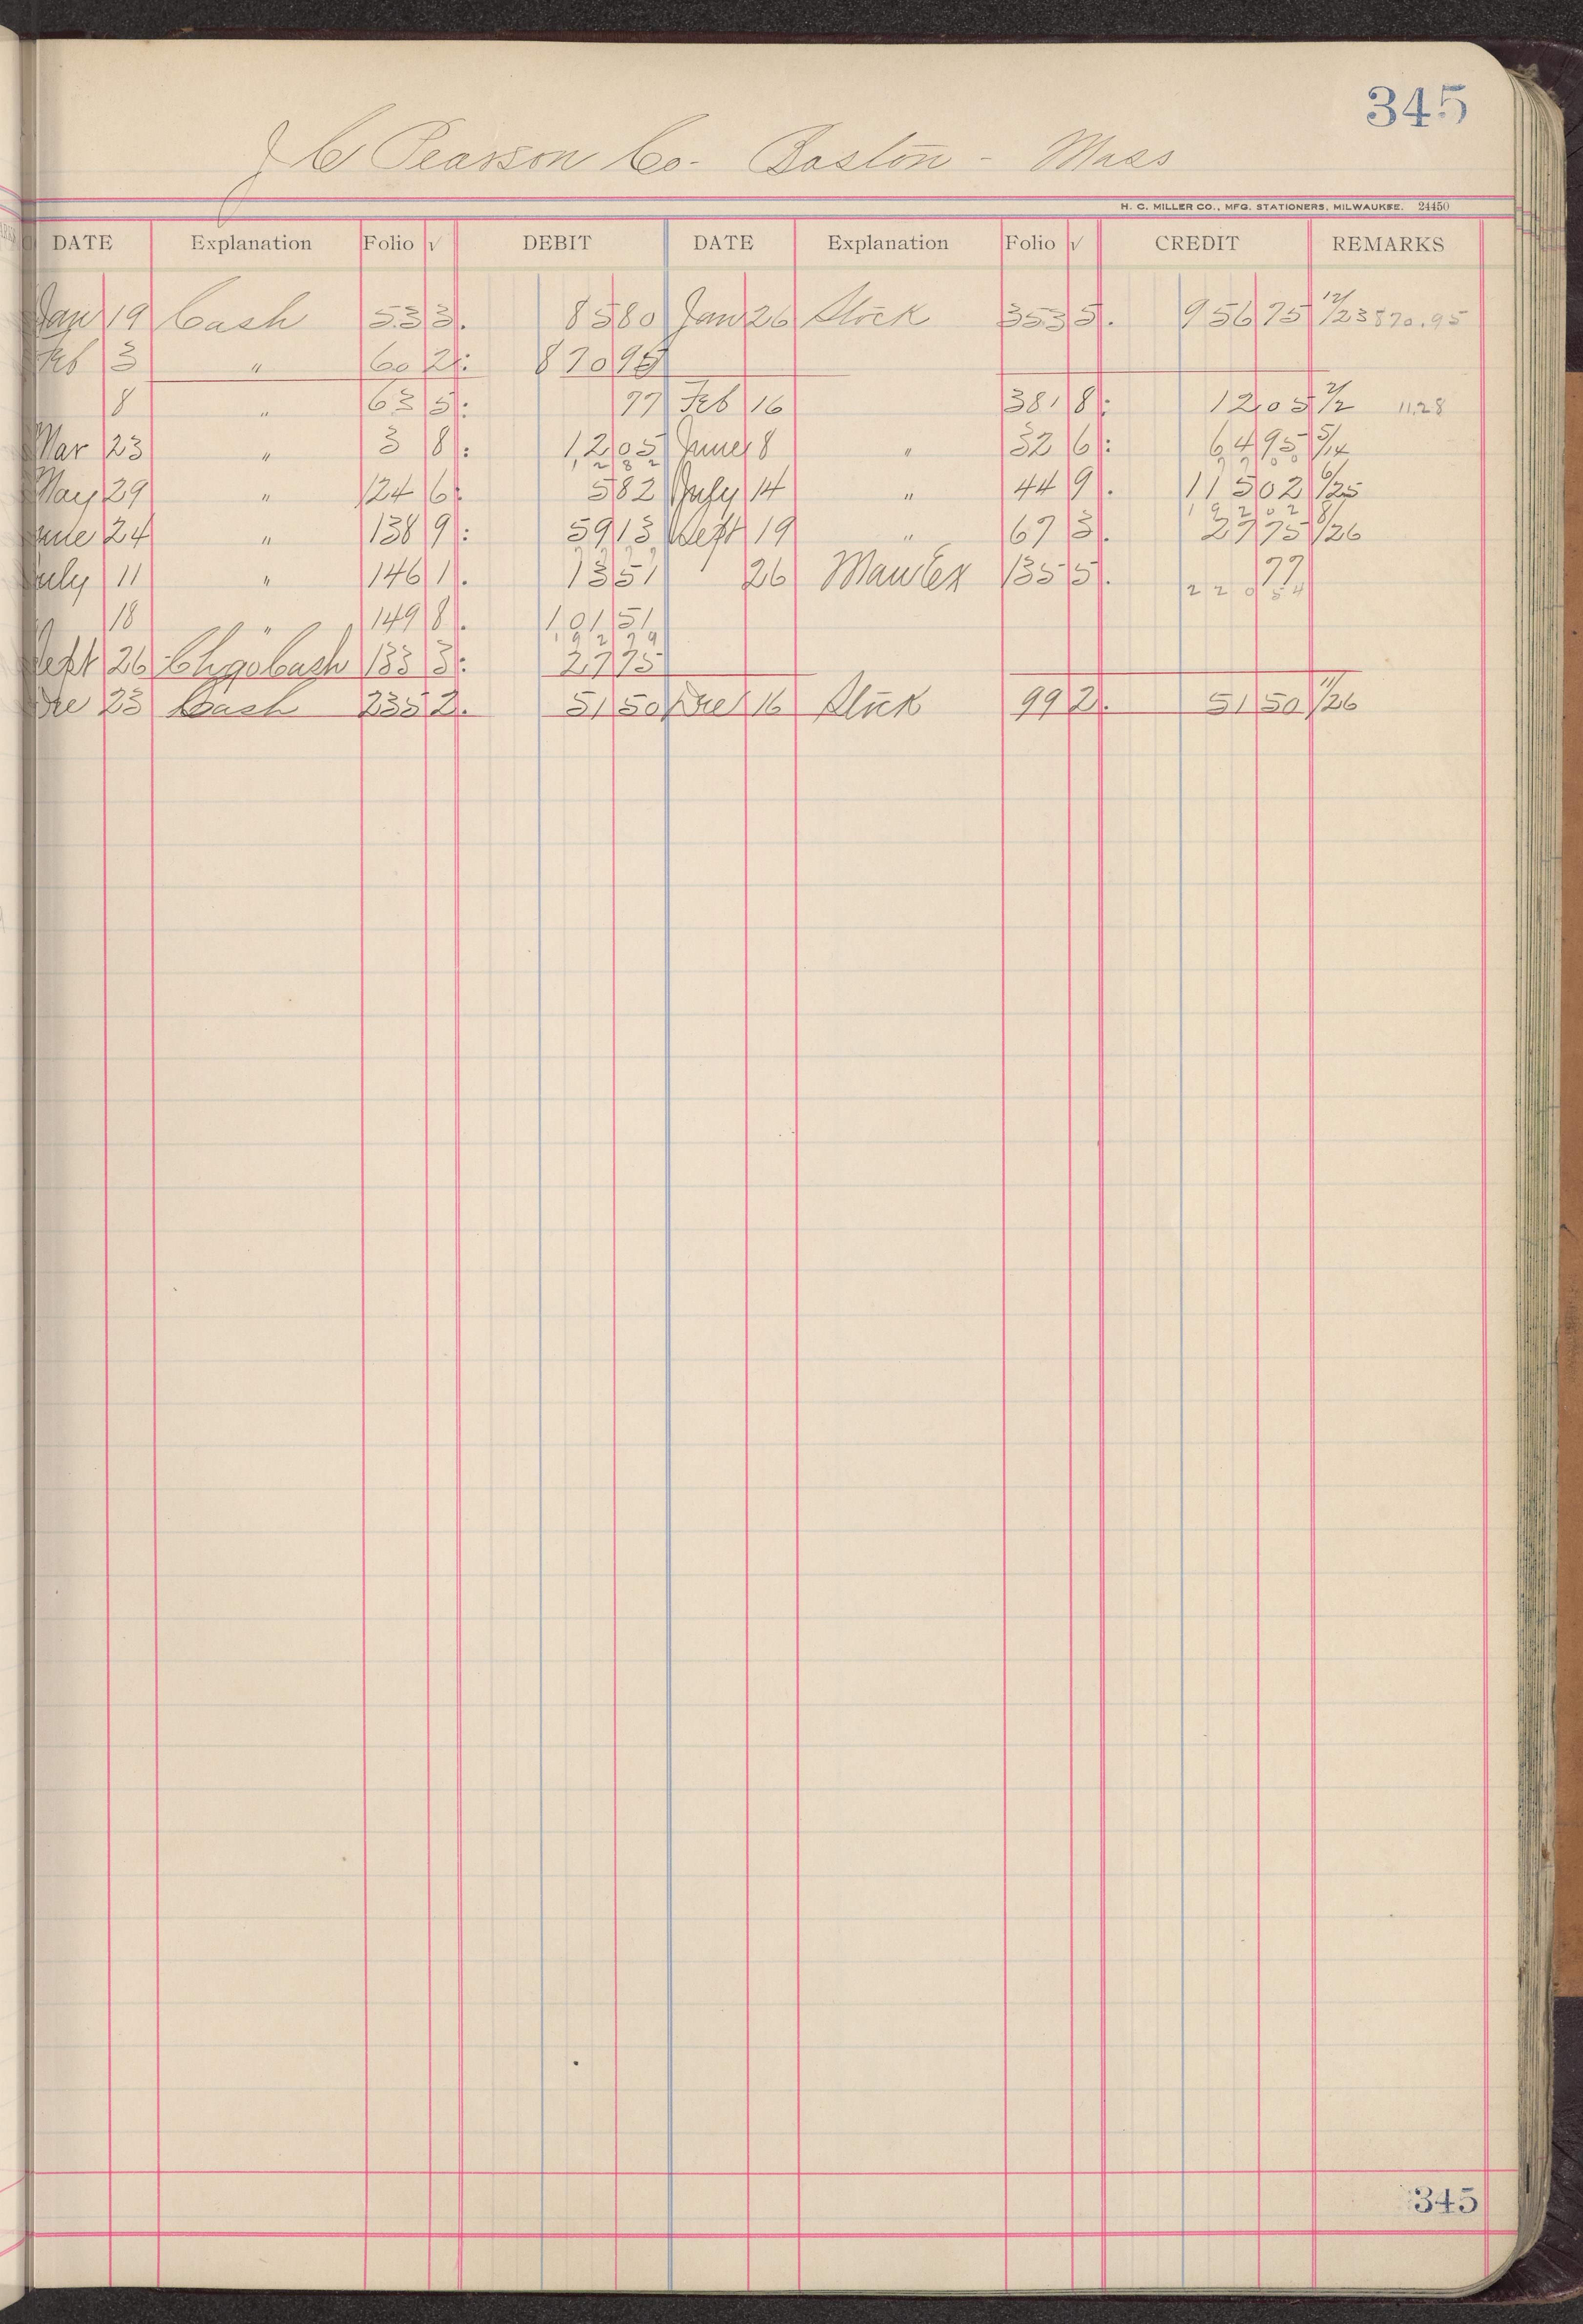 345
J C Pearson Co- Boston - Mass
H. C. MILLER CO., MFG. STATIONERS, MILWAUKEE. 24450
DATE Explanation Folio √ DEBIT DATE Explanation Folio √ CREDIT REMARKS
Jan 19 Cash 533. 8580 Jan 26 Stock 3535. 95675 12/23 870.95
Feb 3 " 602: 87095
8 " 635: 77 Feb 16 3818: 1205 2/2 11.28
Mar 23 " 38: 1205 June 8 " 326: 6495 5/14
1282
May 29 " 1246: 582 July 14 " 449. 11502 6/25
19202
June 24 " 1389: 5913 Sept 19 " 673. 2775 8/26
July 11 " 1461. 1351 26 1355. 77
22054
18 " 1498. 10151
19279
Sept 26 Chgo Cash 1333: 2775
Dec 23 Cash 2352. 5150 Dec 16 Stock 992. 5150 11/26
345